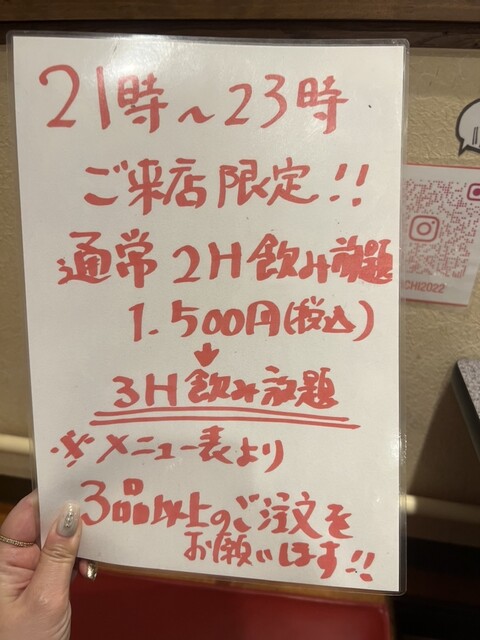 21時～23時
ご来店限定!!
通常 2H飲み放題
1.500円(税込)
↓
3H飲み放題
※メニュー表より
3品以上のご注文を
お願いします!!
ACHI2022